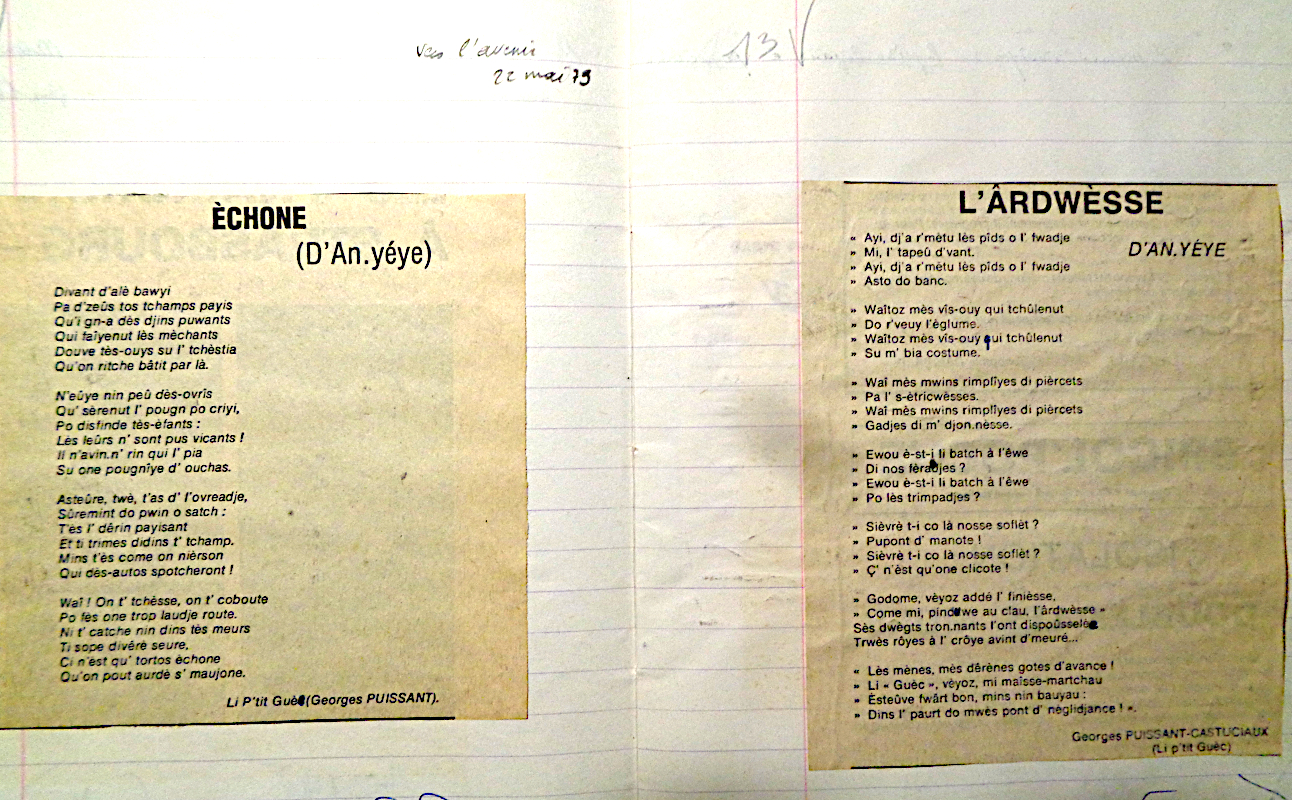 vers l'avenir
22 mai 79
13
ÈCHONE
(D'An.yéye)
Divant d'alè bawyi
Pa d'zeûs tos tchamps payis
Qu'i gn-a dès djins puwants
Qui faîyenut lès mèchants
Douve tès-ouys su l' tchèstia
Qu'on ritche bâtit par là.
N'eûye nin peû dès-ovrîs
Qu' sèrenut l' pougn po criyi,
Po disfinde tès-èfants :
Lès leûrs n' sont pus vicants !
Il n'avin.n' rin qui l' pia
Su one pougnîye d' ouchas.
Asteûre, twè, t'as d' l'ovreadje,
Sûremint do pwin o satch :
T'ès l' dêrin payisant
Et ti trimes didins t' tchamp.
Mins t'ès come on nièrson
Qui dès-autos spotcheront !
Waî ! On t' tchèsse, on t' coboute
Po fès one trop laudje route.
Ni t' catche nin dins tès meurs
Ti sope divêrè seure,
Ci n'èst qu' tortos èchone
Qu'on pout aurdè s' maujone.
Li P'tit Guèc (Georges PUISSANT).
L'ÂRDWÈSSE
D'AN.YÉYE
« Ayi, dj'a r'mètu lès pîds o l' fwadje
» Mi, l' tapeû d'vant.
» Ayi, dj'a r'mètu lès pîds o l' fwadje
» Asto do banc.
» Waîtoz mès vîs-ouy qui tchûlenut
» Do r'veuy l'èglume.
» Waîtoz mès vîs-ouy qui tchûlenut
» Su m' bia costume.
» Waî mès mwins rimplîyes di pièrcets
» Pa l' s-ètricwèsses.
» Waî mès mwins rimplîyes di pièrcets
» Gadjes di m' djon.nèsse.
» Ewou è-st-i li batch à l'êwe
» Di nos fèradjes ?
» Ewou è-st-i li batch à l'êwe
» Po lès trimpadjes ?
» Sièvrè t-i co là nosse soflèt ?
» Pupont d' manote !
» Sièvrè t-i co là nosse soflèt ?
» Ç' n'èst qu'one clicote !
» Godome, vèyoz addé l' finièsse,
» Come mi, pindwe au clau, l'ârdwèsse »
Sès dwègts tron.nants l'ont dispoûsselè
Trwès rôyes à l' crôye avint d'meuré...
« Lès mènes, mès dêrènes gotes d'avance !
» Li « Guèc », vèyoz, mi maîsse-martchau
» Èsteûve fwârt bon, mins nin bauyau :
» Dins l' paurt do mwès pont d' nèglidjance ! ».
Georges PUISSANT-CASTUCIAUX
(Li p'tit Guèc)